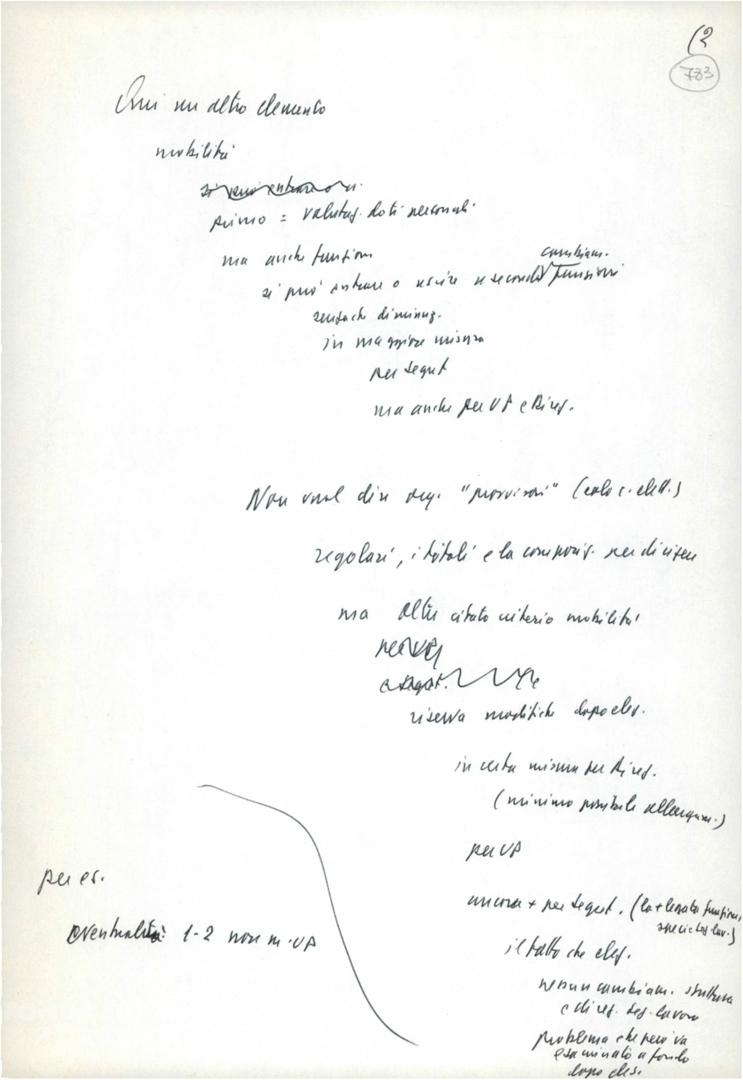 (2
783
Qui un altro elemento
mobilità
primo = valutaz. doti personali
ma anche funzioni
cambiam.
si può entrare o uscire a seconda funzioni
senza che diminuz.
in maggiore misura
per segret
ma anche per UP e Direz.
Non vuol dire org. "provvisori" (solo c. elett.)
regolari, i titoli e la composiz. per
ma oltre citato criterio mobilità
per UP
e segret.
riserva modifiche dopo elez.
in certa misura per Direz.
(minimo possibile allargam.)
per UP
per es.
ancora + per segret. (la + legata funzioni,
eventualità 1-2 nomi UP
il fatto che elez.
nessun cambiam. struttura
e direz. lavoro
problema che però va
esaminato a fondo
dopo elez.